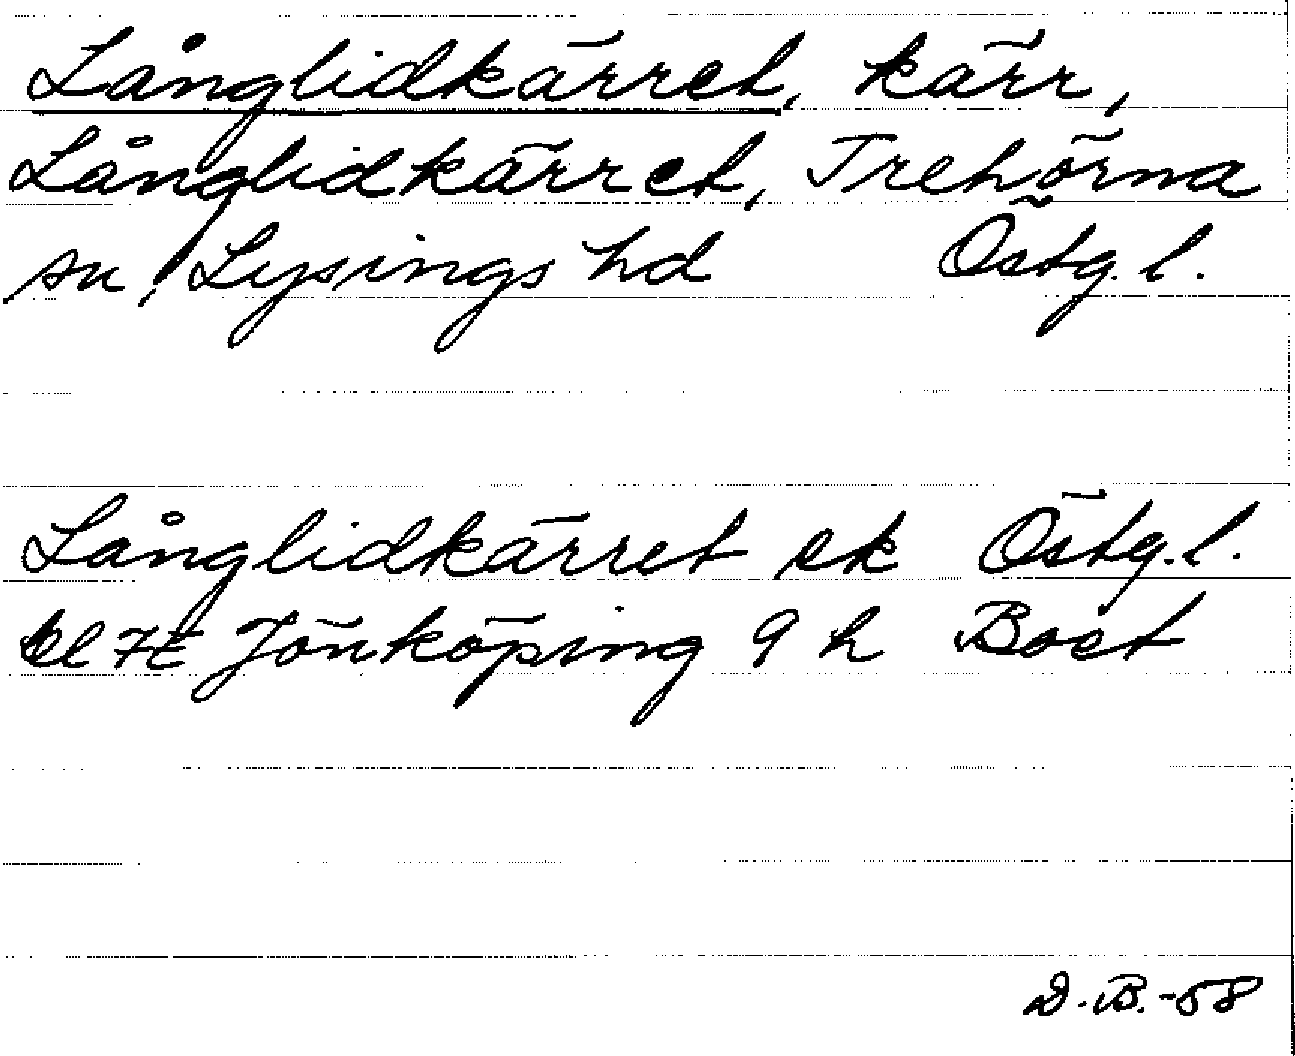 Långlidkärret, kärr,
Långlidkärret, Trehörna
sn, Lysings hd Östg. l.
Långlidkärret ek Östg. l.
bl 7E Jönköping 9 h Boet
D. B. -58